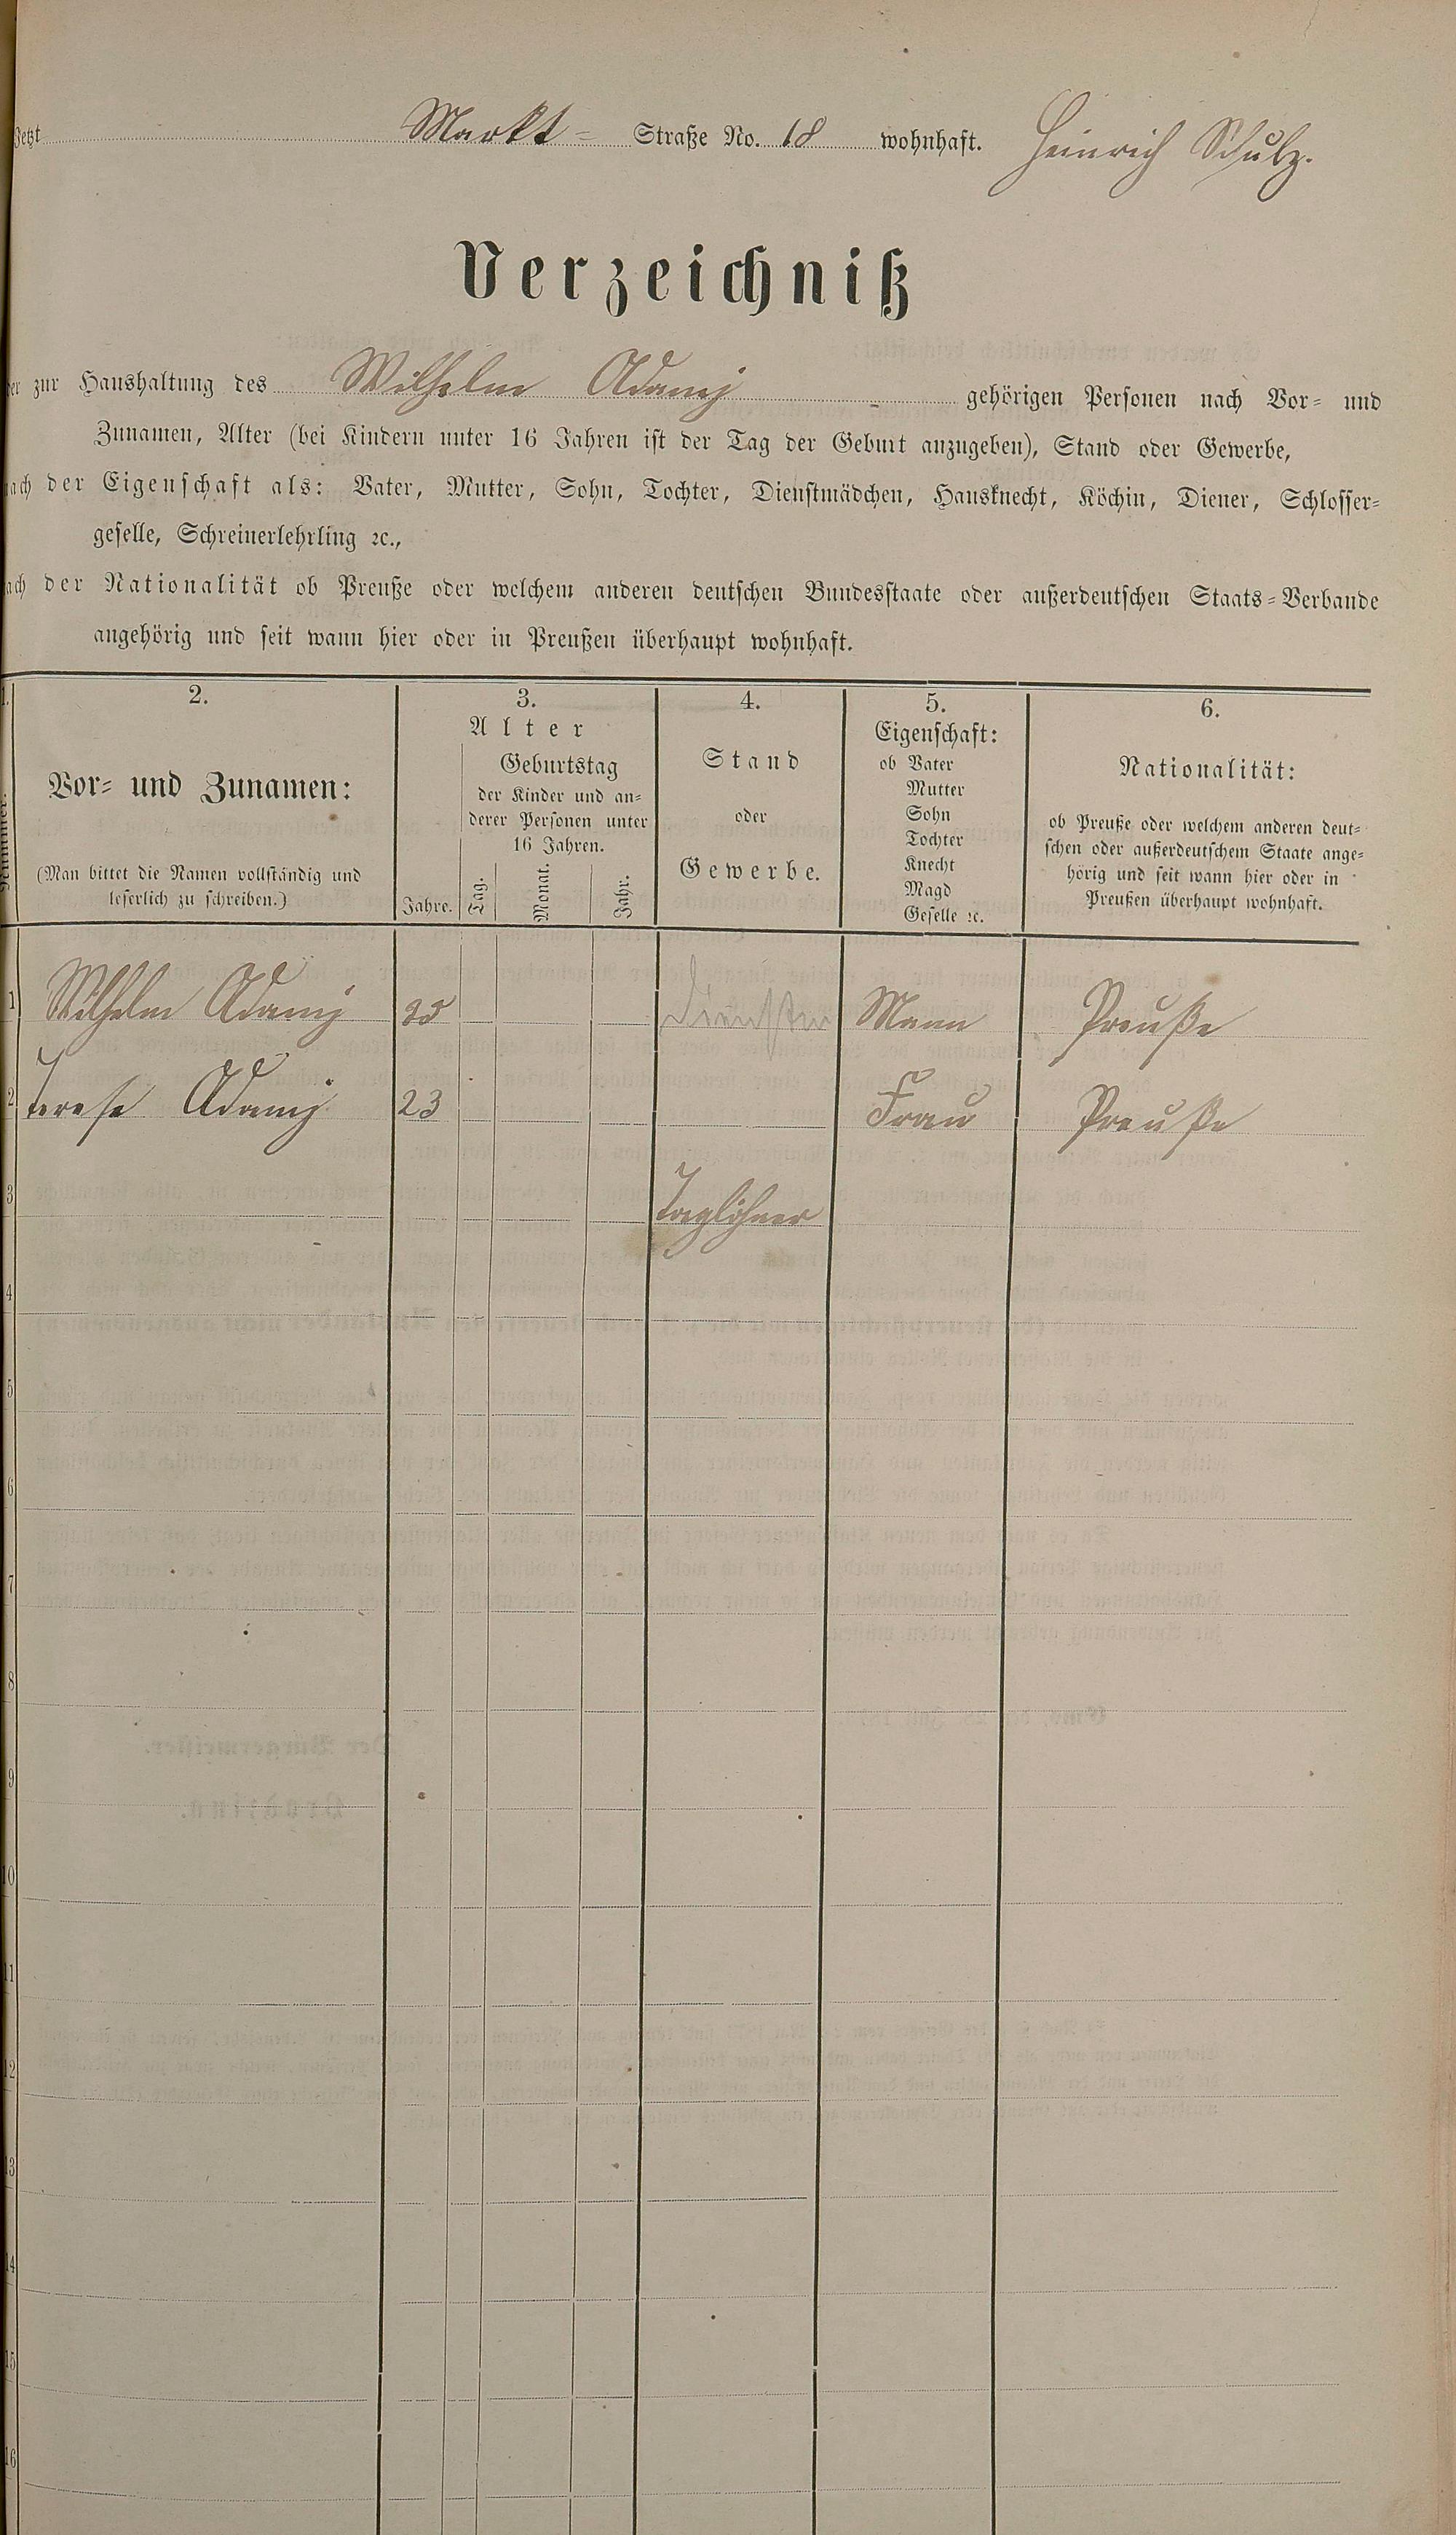 Jetzt Markt- Straße No. 18 wohnhaft. Heinrich Schulz.
Verzeichniß
der zur Haushaltung des Wilhelm Adamy gehörigen Personen nach Vor- und
Zunamen, Alter (bei Kindern unter 16 Jahren ist der Tag der Geburt anzugeben), Stand oder Gewerbe,
nach der Eigenschaft als: Vater, Mutter, Sohn, Tochter, Dienstmädchen, Hausknecht, Köchin, Diener, Schlosser-
geselle, Schreinerlehrling ꝛc.,
nach der Nationalität ob Preuße oder welchem anderen deutschen Bundesstaate oder außerdeutschen Staats-Verbande
angehörig und seit wann hier oder in Preußen überhaupt wohnhaft.
1.
Nummer.
2.
Vor- und Zunamen:
(Man bittet die Namen vollständig und
leserlich zu schreiben.)
3.
Alter
Geburtstag
der Kinder und an-
derer Personen unter
16 Jahren.
Jahre. Tag. Monat. Jahr.
4.
Stand
oder
Gewerbe.
5.
Eigenschaft:
ob Vater
Mutter
Sohn
Tochter
Knecht
Magd
Geselle ꝛc.
6.
Nationalität:
ob Preuße oder welchem anderen deut-
schen oder außerdeutschem Staate ange-
hörig und seit wann hier oder in
Preußen überhaupt wohnhaft.
1 Wilhelm Adamy Mann Preuße
2 Terese Adamy 23 Frau Preuße
3 Taglöhner
4
5
6
7
8
9
10
11
12
13
14
15
16